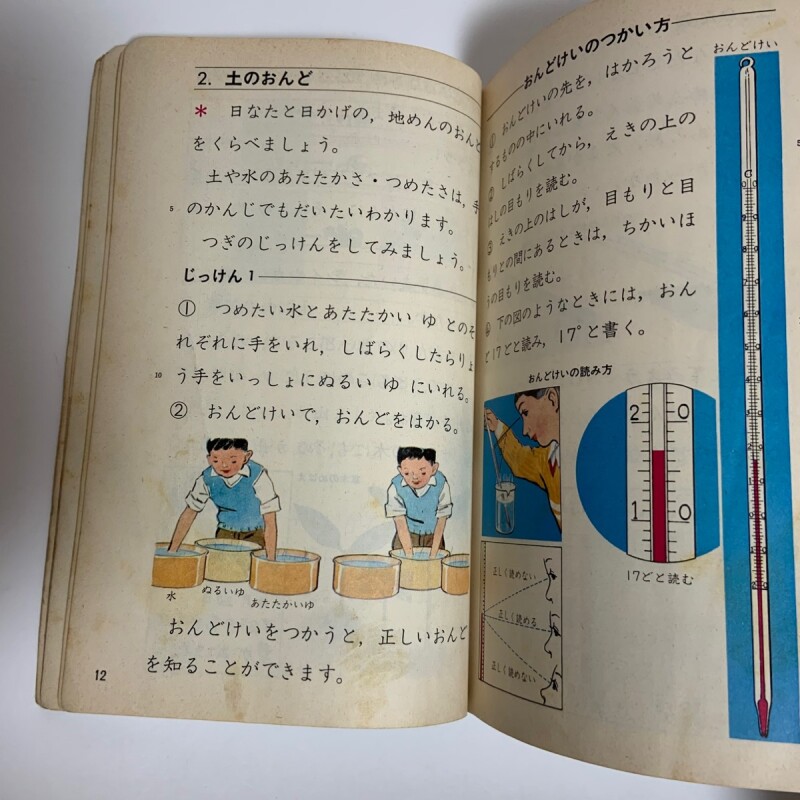 2. 土のおんど
* 日なたと日かげの，地めんのおんど
をくらべましょう。
土や水のあたたかさ・つめたさは，手
5
のかんじでもだいたいわかります。
つぎのじっけんをしてみましょう。
じっけん1
① つめたい水とあたたかい ゆ とのそ
れぞれに手をいれ，しばらくしたらりょ
10
う手をいっしょにぬるい ゆ にいれる。
② おんどけいで，おんどをはかる。
水
ぬるいゆ
あたたかいゆ
おんどけいをつかうと，正しいおんど
を知ることができます。
12
おんどけいのつかい方
① おんどけいの先を，はかろうと
するものの中にいれる。
② しばらくしてから，えきの上の
はしの目もりを読む。
③ えきの上のはしが，目もりと目
もりとの間にあるときは，ちかいほ
うの目もりを読む。
④ 下の図のようなときには，おん
ど17どと読み，17°と書く。
おんどけいの読み方
正しく読めない
正しく読める
正しく読めない
20
10
17どと読む
おんどけい
C